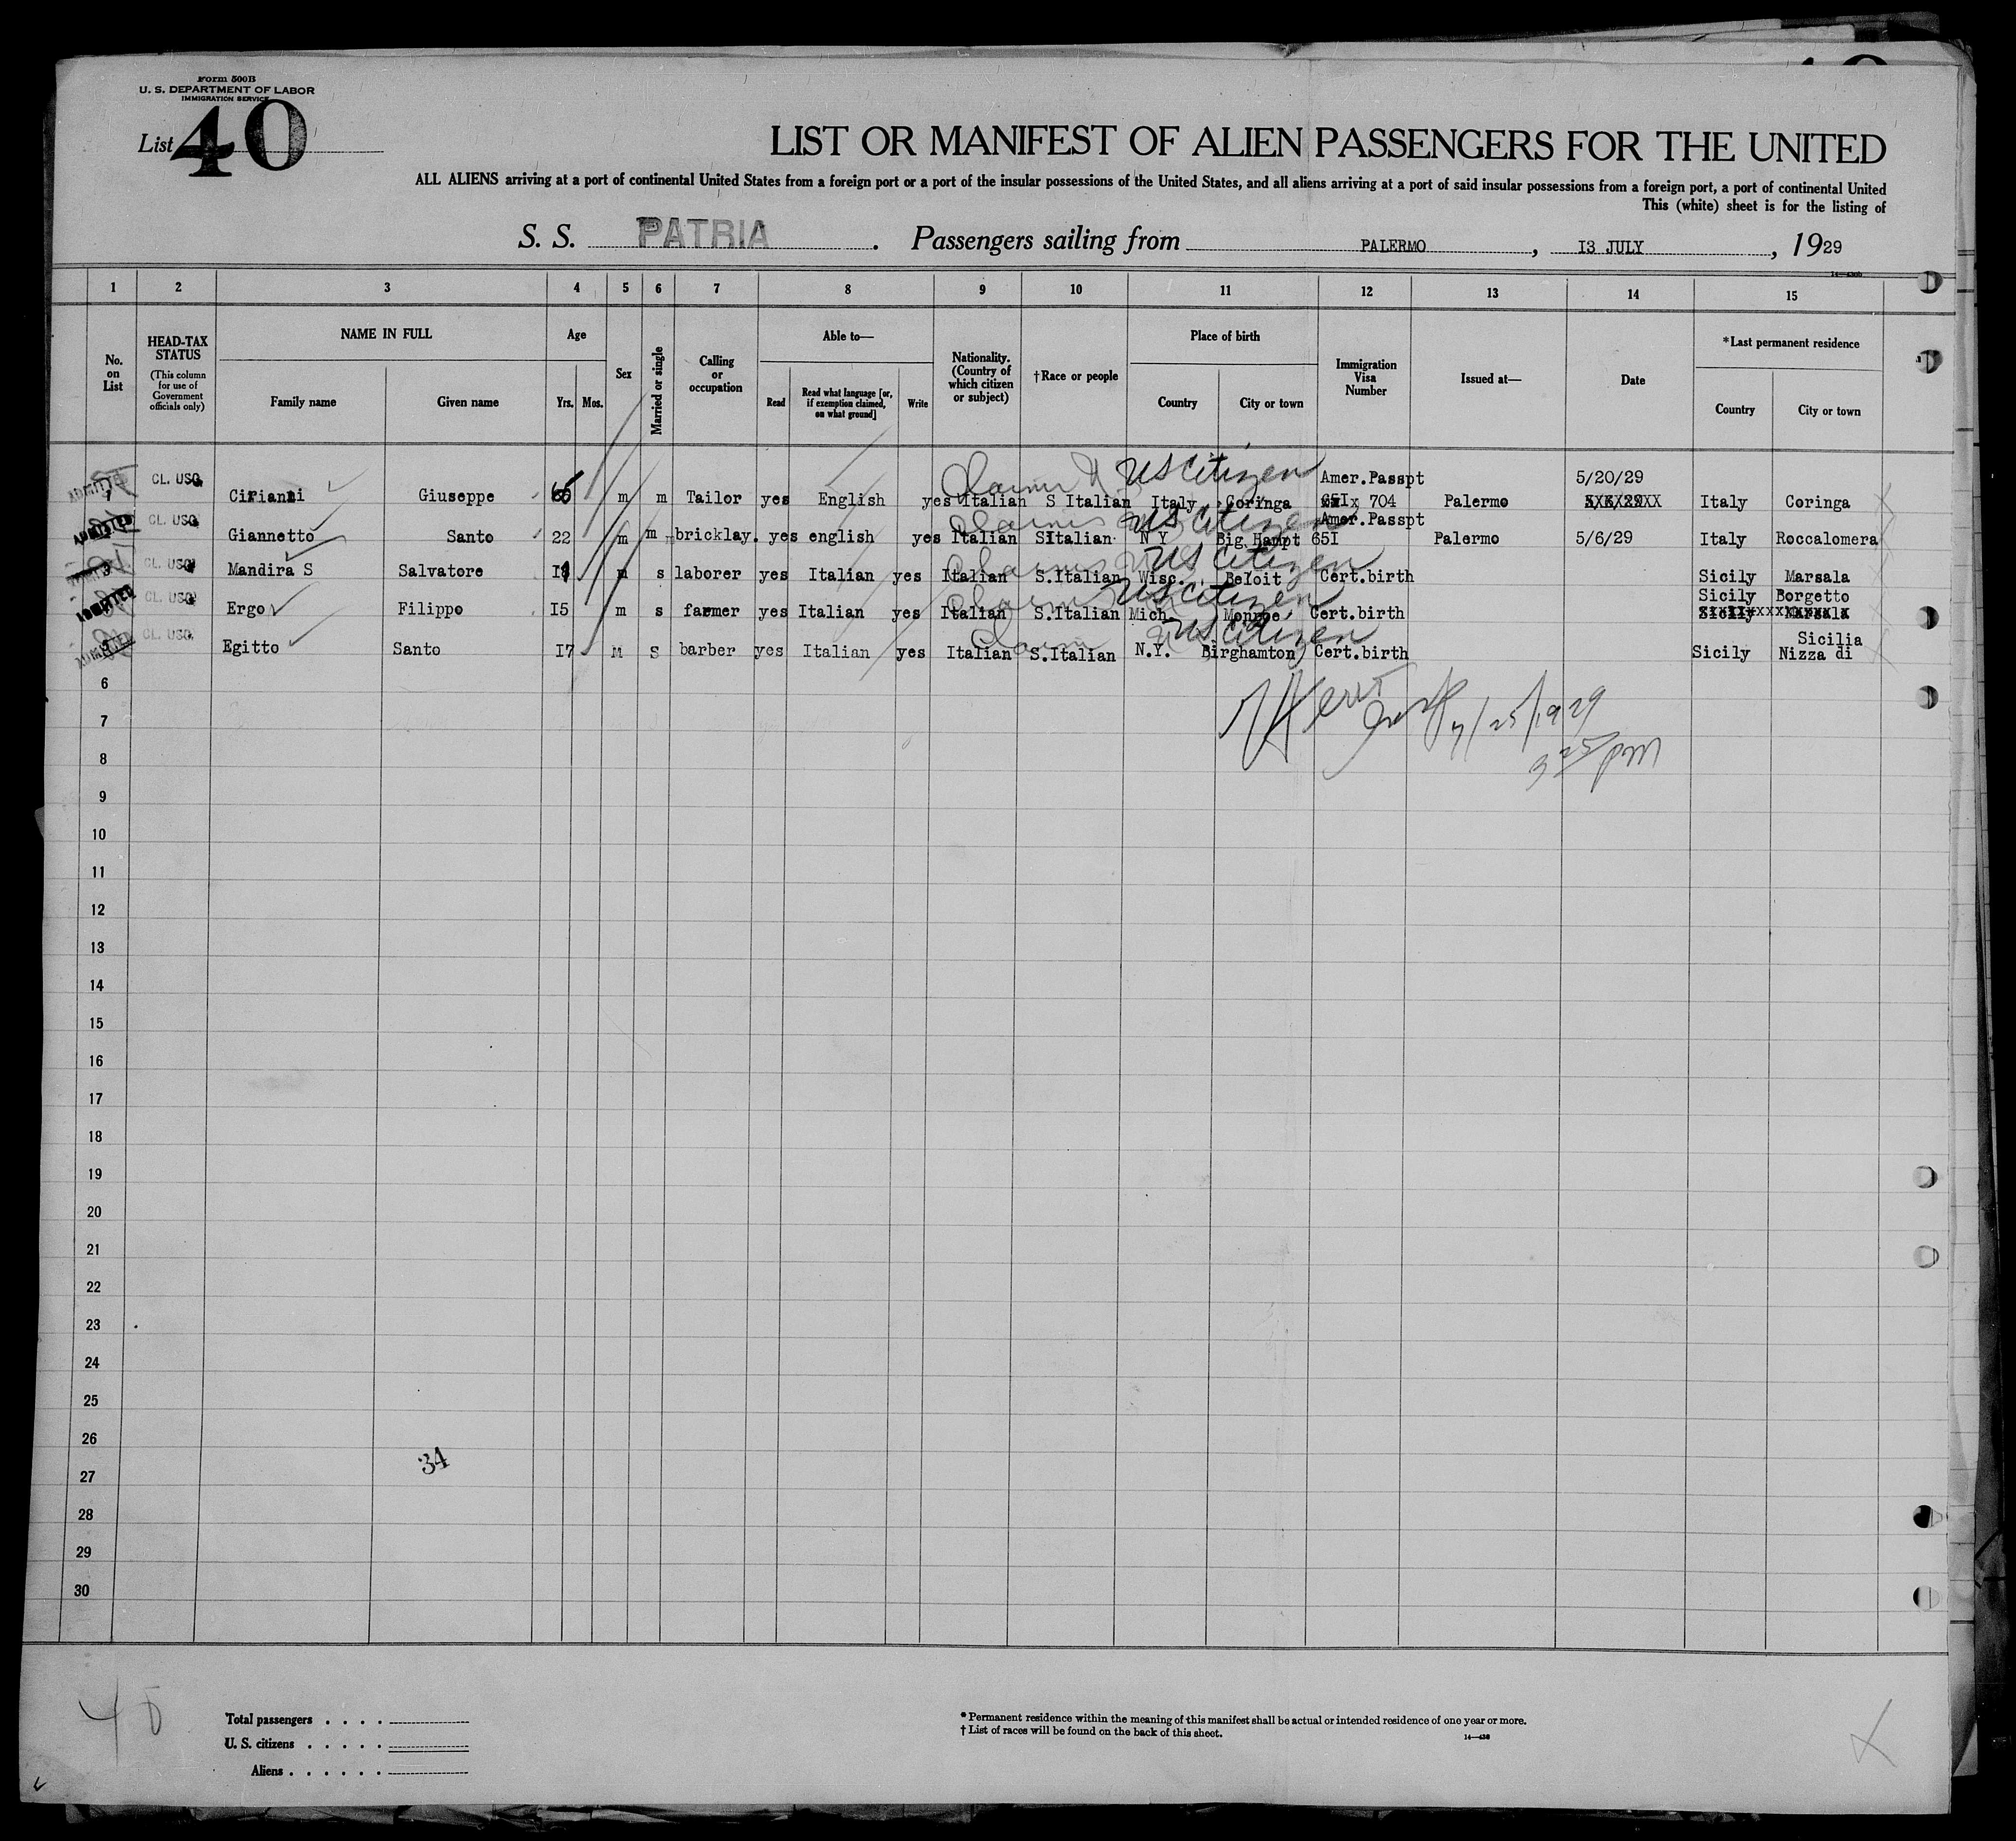 Form 500B
U. S. DEPARTMENT OF LABOR
IMMIGRATION SERVICE
List 40
LIST OR MANIFEST OF ALIEN PASSENGERS FOR THE UNITED
ALL ALIENS arriving at a port of continental United States from a foreign port or a port of the insular possessions of the United States, and all aliens arriving at a port of said insular possessions from a foreign port, a port of continental United
This (white) sheet is for the listing of
S. S. PATRIA. Passengers sailing from PALERMO, I3 JULY, 1929
1 2 3 4 5 6 7 8 9 10 11 12 13 14 15
No. on List
HEAD-TAX STATUS
(This column for use of Government officials only)
NAME IN FULL
Family name Given name
Age
Yrs. Mos.
Sex
Married or single
Calling or occupation
Able to—
Read
Read what language [or, if exemption claimed, on what ground]
Write
Nationality. (Country of which citizen or subject)
†Race or people
Place of birth
Country City or town
Immigration Visa Number
Issued at—
Date
*Last permanent residence
Country City or town
US Citizen Amer.Passpt 5/20/29
1 ADMITTED CL. USC. Cirianni Giuseppe m m Tailor yes English yes Italian S Italian Italy Coringa 704 Palermo Italy Coringa
Claims US Citizen Amer.Passpt
ADMITTED CL. USC. Giannetto Santo 22 m m bricklay. yes english yes Italian SItalian N Y Big Hampt 65I Palermo 5/6/29 Italy Roccalomera
Claims US Citizen
3 CL. USC. Mandira S Salvatore m s laborer yes Italian yes Italian S.Italian Wisc. Beloit Cert.birth Sicily Marsala
Claims US Citizen Sicily Borgetto
ADMITTED CL. USC. Ergo Filippo I5 m s farmer yes Italian yes Italian S.Italian Mich. Monroe Cert.birth
Claims US Citizen Sicilia
5 CL. USC. Egitto Santo I7 M S barber yes Italian yes Italian S.Italian N.Y. Birghamton Cert.birth Sicily Nizza di
6
7
7/25/1929
8
3 25 pm
9
10
11
12
13
14
15
16
17
18
19
20
21
22
23
24
25
26
34
27
28
29
30
40
Total passengers . . . .
U. S. citizens . . . . .
Aliens . . . . . .
* Permanent residence within the meaning of this manifest shall be actual or intended residence of one year or more.
† List of races will be found on the back of this sheet.
14—430